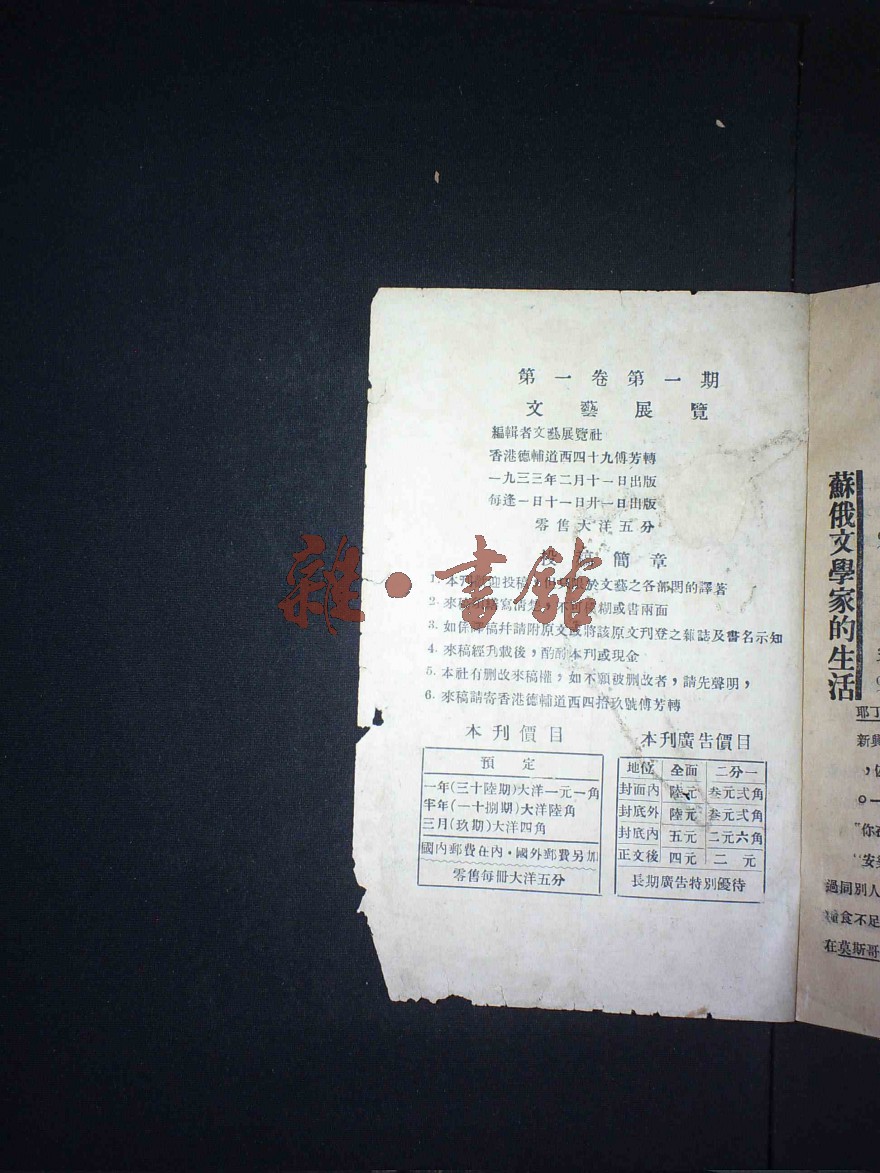 第一卷第一期
文藝展覽
編輯者文藝展覽社
香港德輔道西四十九傅芳轉
一九三三年二月十一日出版
每逢一日十一日廿一日出版
零售大洋五分
投稿簡章
雜·書館
1. 本刊歡迎投稿 於文藝之各部門的譯著
2. 來稿 寫清楚,不可模糊或書兩面
3. 如係譯稿幷請附原文或將該原文刊登之雜誌及書名示知
4. 來稿經刋載後,酌酬本刊或現金
5. 本社有删改來稿權,如不願被删改者,請先聲明,
6. 來稿請寄香港德輔道西四拾玖號傅芳轉
本刊價目
預定
一年(三十陸期)大洋一元一角
半年(一十捌期)大洋陸角
三月(玖期)大洋四角
國內郵費在內·國外郵費另加
零售每冊大洋五分
本刊廣告價目
地位 全面 二分一
封面內 陸元 叁元弍角
封底外 陸元 叁元弍角
封底內 五元 二元六角
正文後 四元 二元
長期廣告特別優待
蘇俄文學家的生活
耶丁
新興
。一
"你在
"安
過同別人
食不足
在莫斯哥